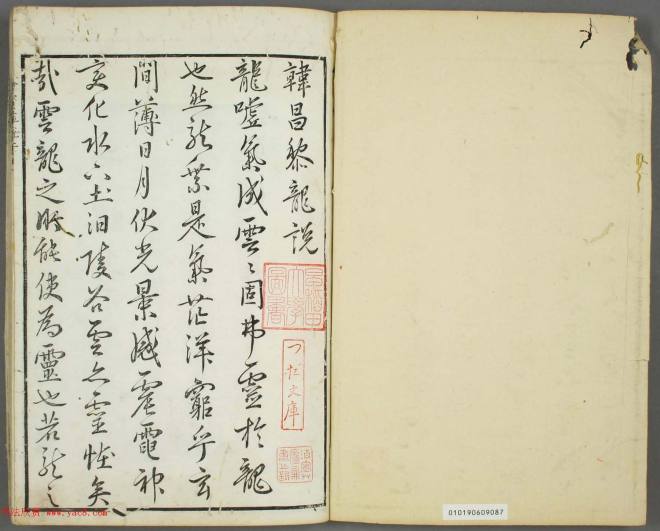 韓昌黎龍說
龍噓氣成雲〻固弗靈於龍
也然龍乘是氣茫洋窮乎玄
間薄日月伏光景感震電神
變化水下土汩陵谷雲亦靈怪矣
哉雲龍之所能使為靈也若龍之
早稻田大學圖書
文庫
010190609087
书法欣赏 www.yac8.com